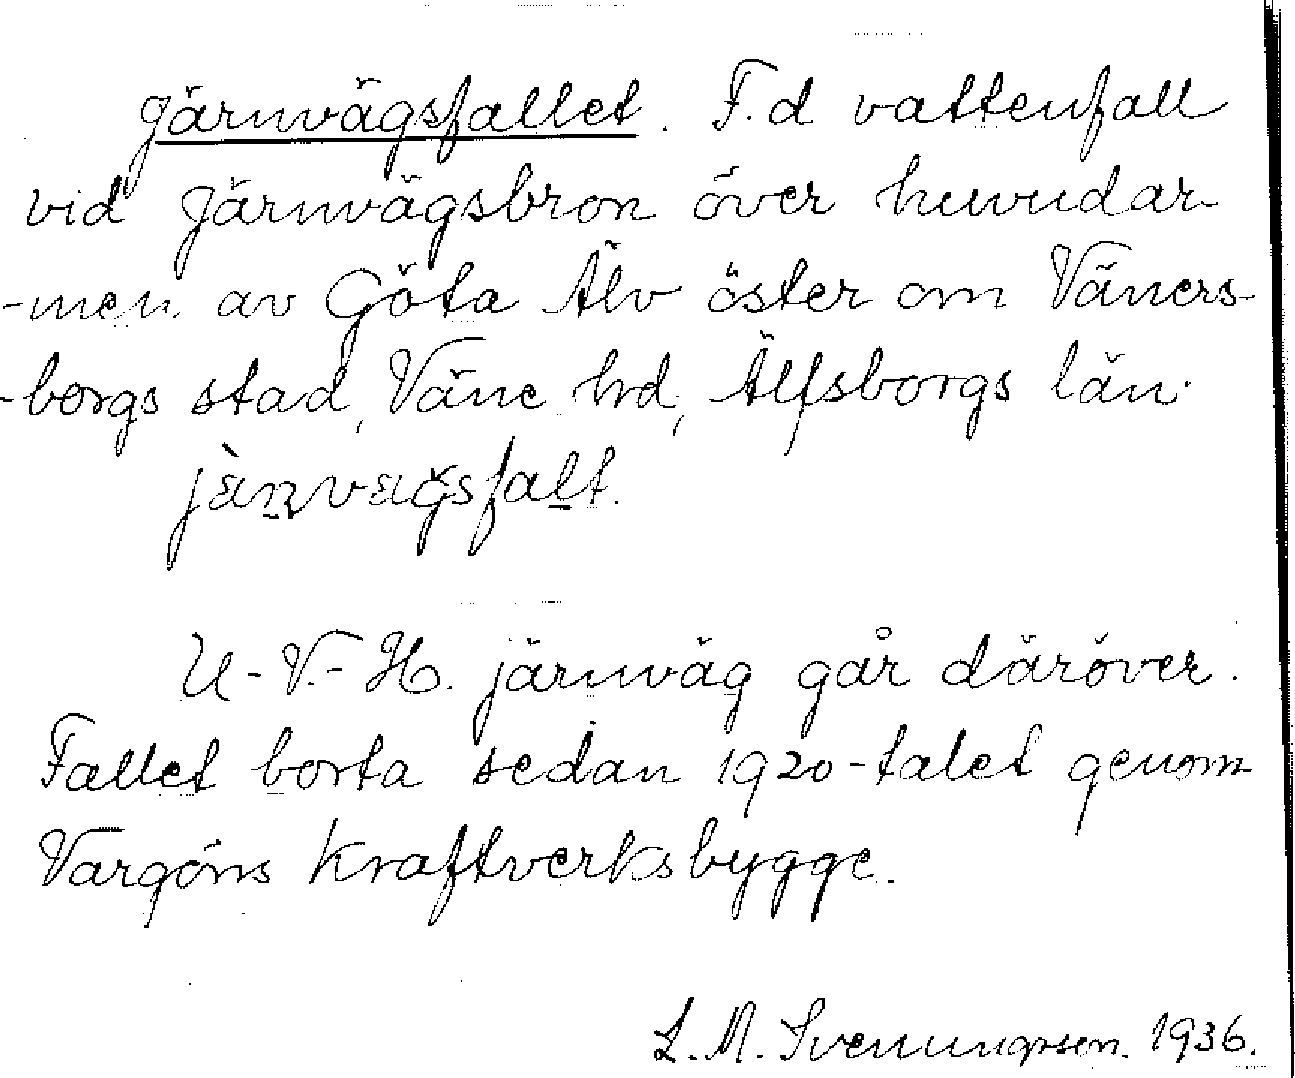 Järnvägsfallet. F.d vattenfall
vid Järnvägsbron över huvudar-
-men av Göta Älv öster om Väners-
-borgs stad, Väne hd, Älfsborgs län.
U.-V.-H. järnväg går däröver.
Fallet borta sedan 1920-talet genom
Vargöns Kraftverksbygge.
L. M. Svenungsson. 1936.